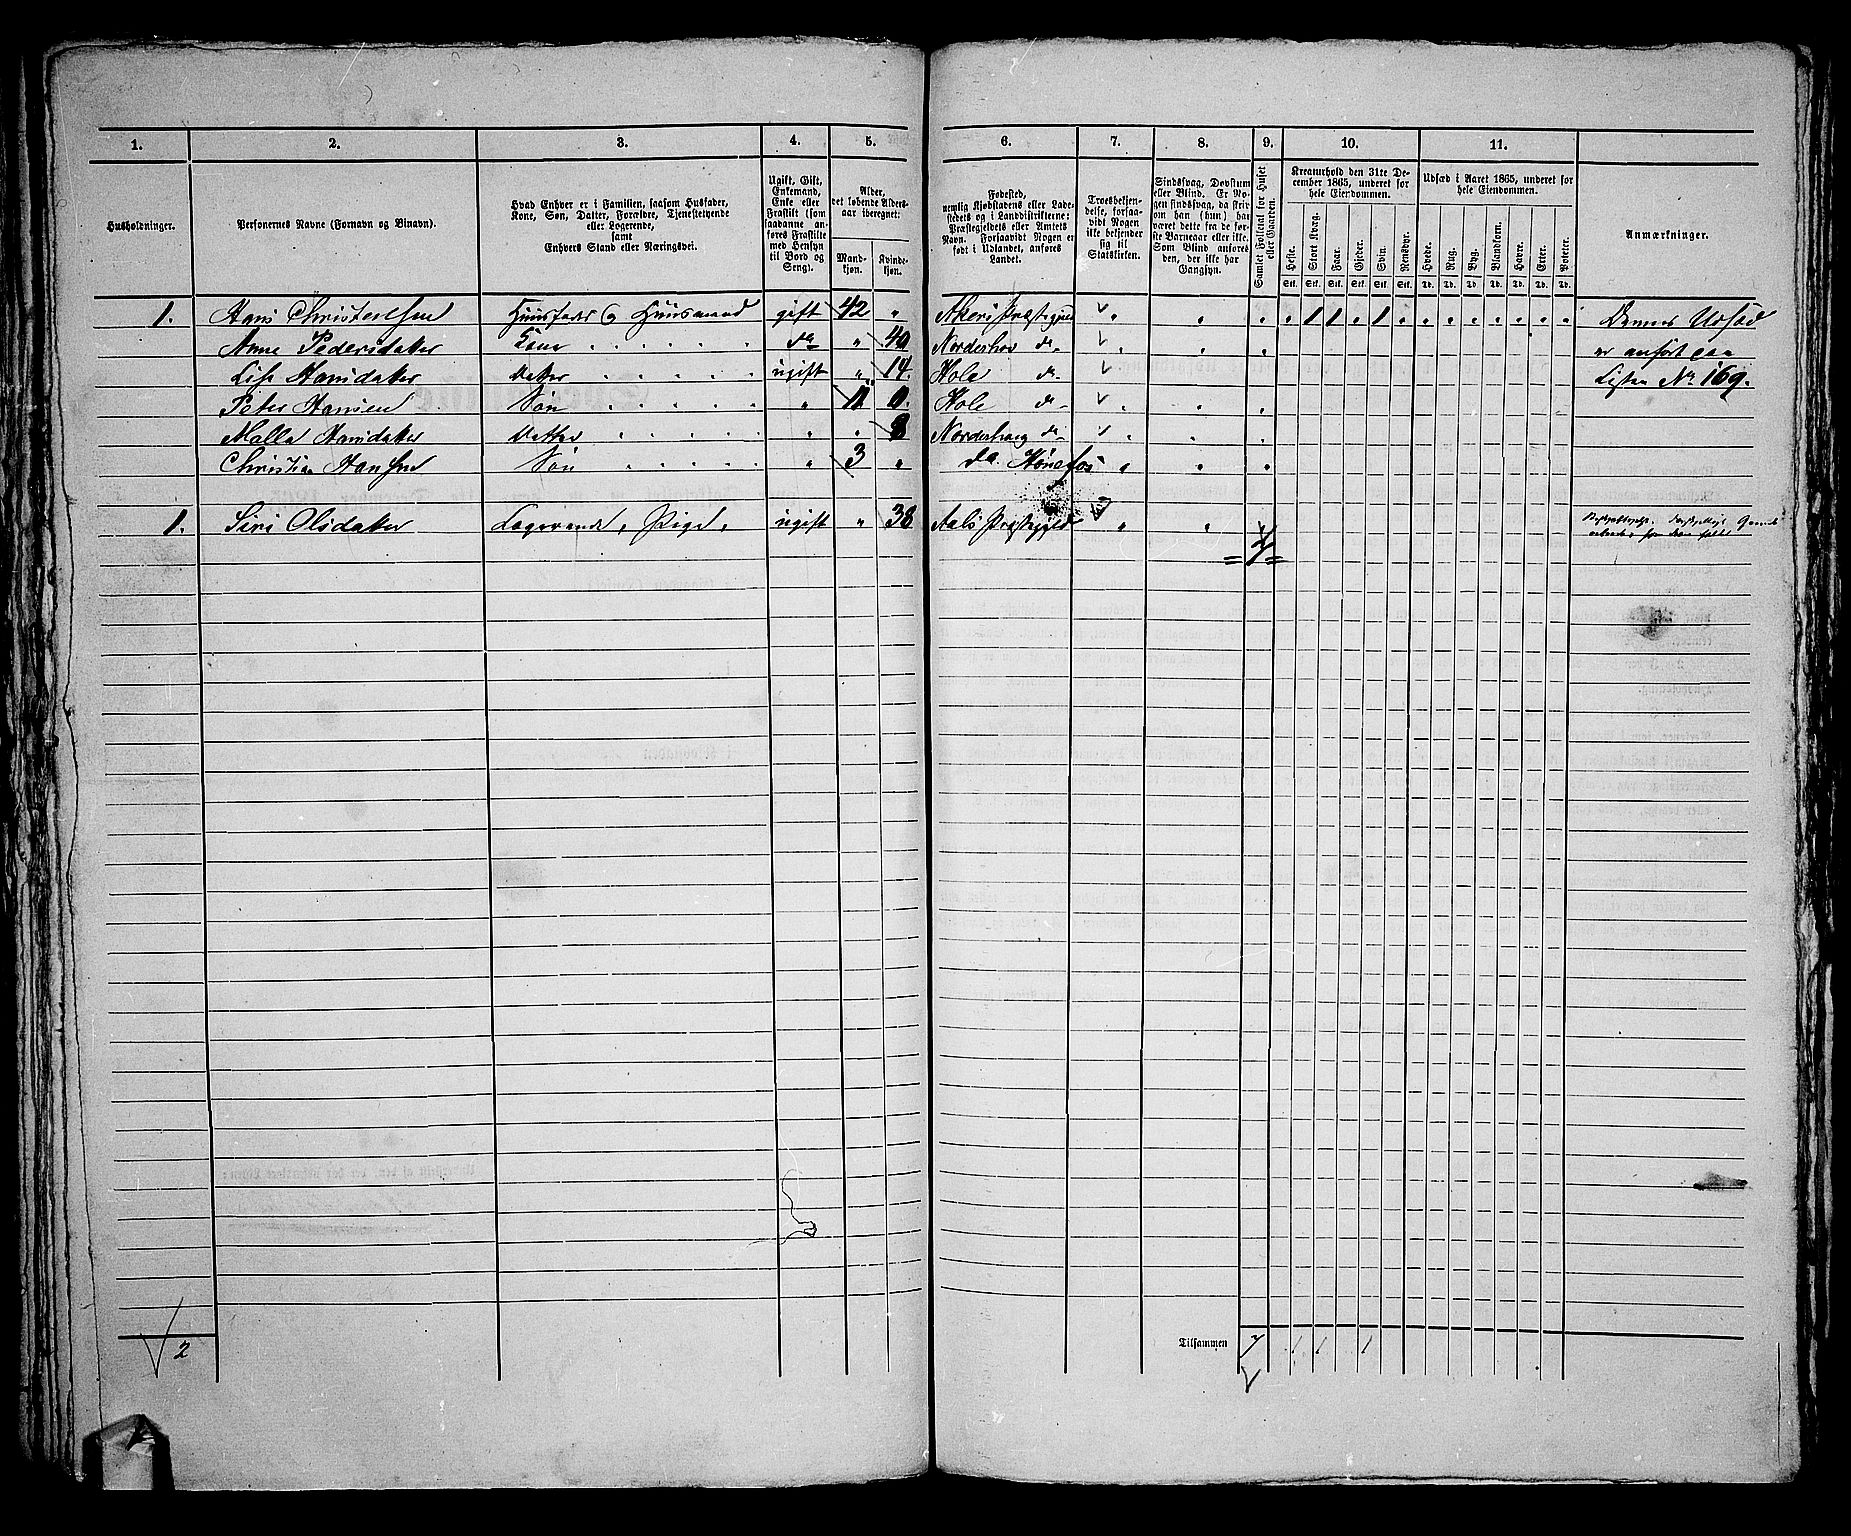 1. 2. 3. 4. 5. 6. 7. 8. 9. 10. 11.
Husholdninger.
Personernes Navne (Fornavn og Binavn).
Hvad Enhver er i Familien, saasom Husfader,
Kone, Søn, Datter, Forældre, Tjenestetyende
eller Logerende,
samt
Enhvers Stand eller Næringsvei.
Ugift, Gift,
Enkemand,
Enke eller
Fraskilt (som
saadanne an-
føres Fraskilte
med Hensyn
til Bord og
Seng).
Alder,
det løbende Alders-
aar iberegnet:
Mand-
kjøn.
Kvinde-
kjøn.
Fødested,
nemlig Kjøbstadens eller Lade-
stedets og i Landdistrikterne:
Præstegjeldets eller Amtets
Navn. Forsaavidt Nogen er
født i Udlandet, anføres
Landet.
Troesbekjen-
delse, forsaa-
vidt Nogen
ikke bekjender
sig til
Statskirken.
Sindssvag, Døvstum
eller Blind. Er No-
gen sindssvag, da skri-
om han (hun) har
været dette fra de før-
ste Barneaar eller ikke.
Som Blind anføres
den, der ikke har
Gangsyn.
Samlet Folketal for Huset
eller Gaarden.
Kreaturhold den 31te De-
cember 1865, underet for
hele Eiendommen.
Heste. Stort Kvæg. Faar. Gjeder. Svin. Rensdyr.
Stk. Stk. Stk. Stk. Stk. Stk.
Udsæd i Aaret 1865, underet for
hele Eiendommen.
Hvede. Rug. Byg. Blandkorn. Havre. Erter. Poteter.
Td. Td. Td. Td. Td. Td. Td.
Anmærkninger.
1. Hans Christensen Huusfader og Huusmand gift 42 " Akers Præstegjeld " " " " 1 1 " 1 " " " " " " " " Dennes Udsæd
Anne Pedersdatter Kone do " 40 Norderhov do " " " er anført paa
Lise Hansdatter Datter ugift " 14. Hole do Listen No 169.
Peter Hansen Søn " 11 Hole do " " "
Malla Hansdatter Datter " " 8 Norderhoug do " " "
Christian Hansen Søn " 3 " do. Hønefos " " "
1. Siri Olsdatter Logerende, Pige, ugift " 38 Aals Præstegjeld " "
= 7 =
2
Tilsammen 7 1 1 1